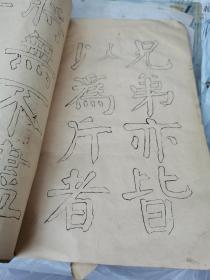 兄弟亦皆
以為斤者
無不